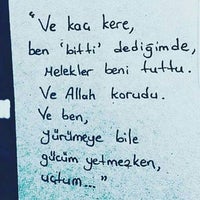 "Ve kaç kere,
ben 'bitti' dediğimde,
Melekler beni tuttu.
Ve Allah korudu.
Ve ben,
yürümeye bile
gücüm yetmezken,
uçtum..."